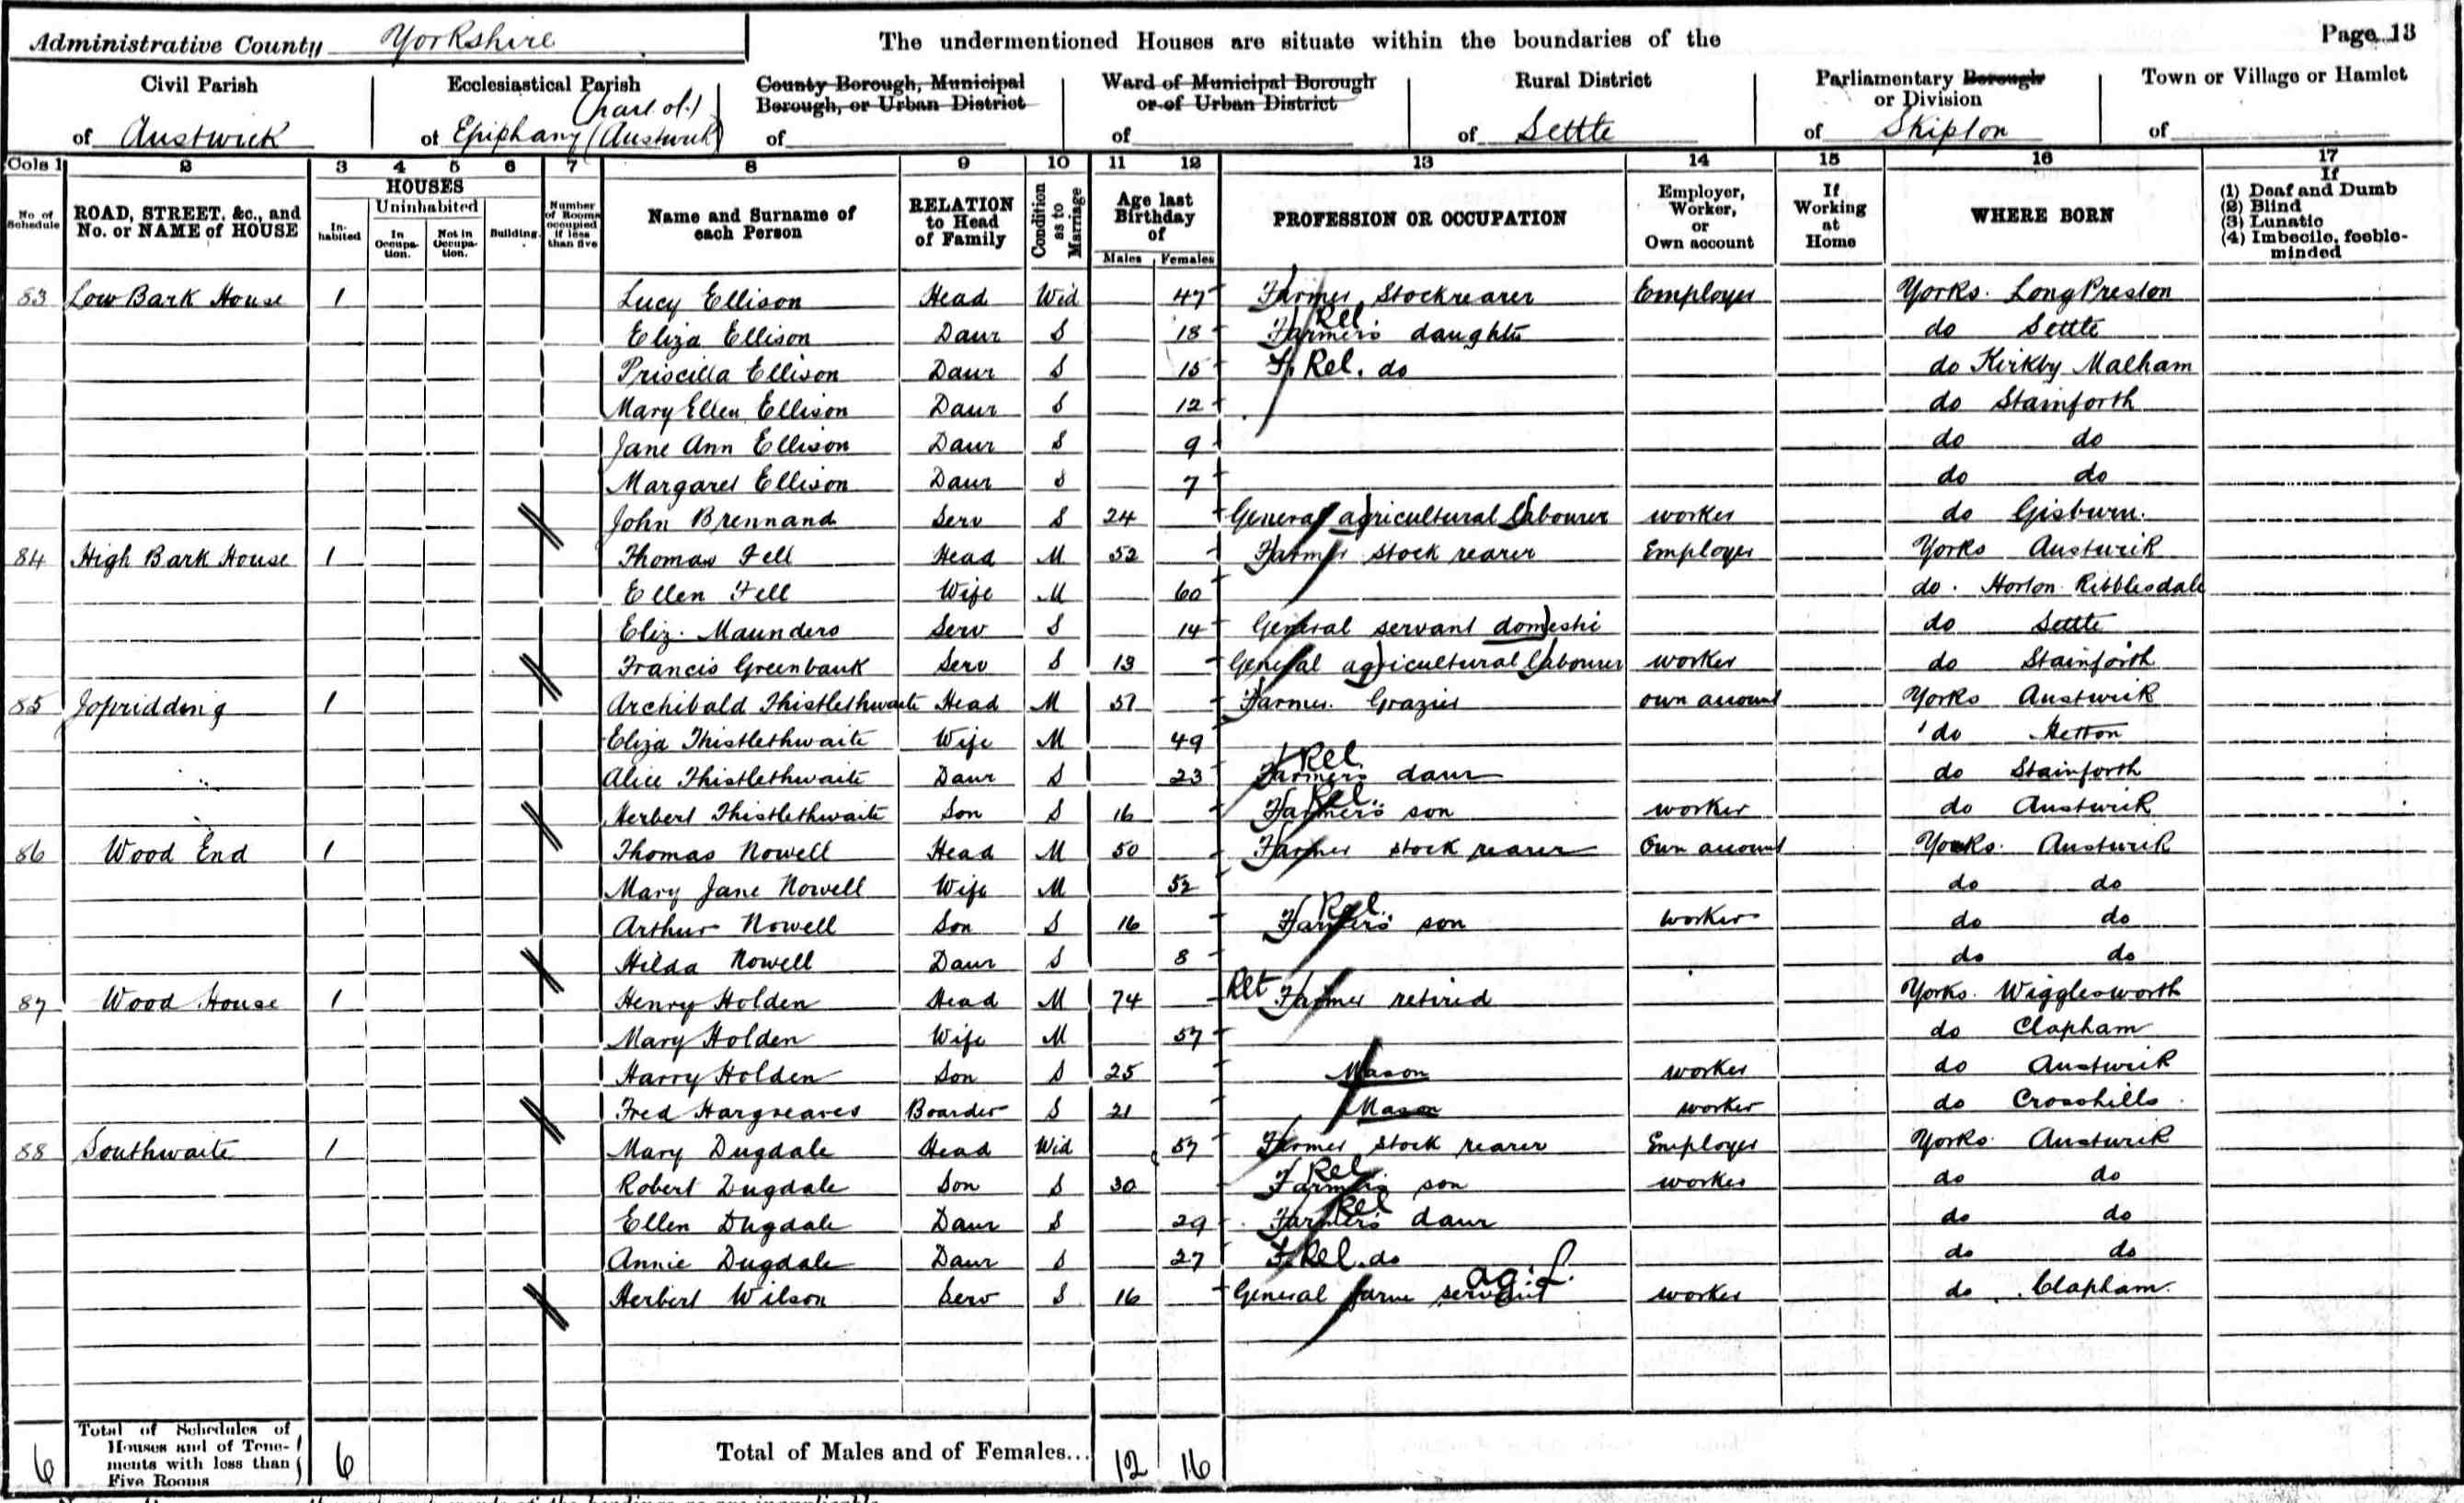 Administrative County Yorkshire The undermentioned Houses are situate within the boundaries of the Page 13
Civil Parish Ecclesiastical Parish County Borough, Municipal Borough, or Urban District Ward of Municipal Borough or of Urban District Rural District Parliamentary Borough or Division Town or Village or Hamlet
of Austwick of Epiphany (part of) (Austwick) of of of Settle of Skipton of
Cols 1 2 3 4 5 6 7 8 9 10 11 12 13 14 15 16 17
No of Schedule ROAD, STREET, &c., and No. or NAME of HOUSE HOUSES Inhabited Uninhabited In Occupation. Not in Occupation. Building. Number of Rooms occupied if less than five Name and Surname of each Person RELATION to Head of Family Condition as to Marriage Age last Birthday of Males Females PROFESSION OR OCCUPATION Employer, Worker, or Own account If Working at Home WHERE BORN If (1) Deaf and Dumb (2) Blind (3) Lunatic (4) Imbecile, feeble-minded
83 Low Bark House 1 Lucy Ellison Head Wid 47 Farmer Stockrearer Employer Yorks. Long Preston
Eliza Ellison Daur S 18 Farmer's Rel daughter do Settle
Priscilla Ellison Daur S 15 F. Rel. do do Kirkby Malham
Mary Ellen Ellison Daur S 12 do Stainforth
Jane Ann Ellison Daur S 9 do do
Margaret Ellison Daur S 7 do do
John Brennand Serv S 24 General agricultural labourer worker do Gisburn.
84 High Bark House 1 Thomas Fell Head M 52 Farmer Stock rearer Employer Yorks Austwick
Ellen Fell Wife M 60 do. Horton Ribblesdale
Eliz. Maunders Serv S 14 General servant domestic do Settle
Francis Greenbank Serv S 13 General agricultural labourer worker do Stainforth
85 1 Archibald Thistlethwaite Head M 51 Farmer. Grazier own account Yorks Austwick
Eliza Thistlethwaite Wife M 49 do Hetton
Alice Thistlethwaite Daur S 23 Farmer's Rel daur do Stainforth
Herbert Thistlethwaite Son S 16 Farmer's Rel. son worker do Austwick
86 Wood End 1 Thomas Nowell Head M 50 Farmer stock rearer Own account Yorks. Austwick
Mary Jane Nowell Wife M 52 do do
Arthur Nowell Son S 16 Farmer's Rel. son worker do do
Hilda Nowell Daur S 8 do do
87 Wood House 1 Henry Holden Head M 74 Ret Farmer retired Yorks. Wigglesworth
Mary Holden Wife M 57 do Clapham
Harry Holden Son S 25 Mason worker do Austwick
Fred Hargreaves Boarder S 21 Mason worker do Crosshills
88 Southwaite 1 Mary Dugdale Head Wid 57 Farmer Stock rearer Employer Yorks. Austwick
Robert Dugdale Son S 30 Farmer's Rel son worker do do
Ellen Dugdale Daur S 29 Farmer's Rel daur do do
Annie Dugdale Daur S 27 F. Rel. do do do
Herbert Wilson Serv S 16 General farm servant ag: L. worker do Clapham.
6 Total of Schedules of Houses and of Tenements with less than Five Rooms 6 Total of Males and of Females... 12 16